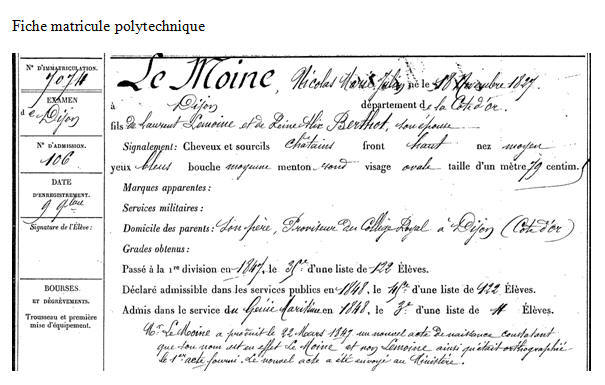 Fiche matricule polytechnique
N° D'IMMATRICULATION.
EXAMEN
de Dijon
N° D'ADMISSION.
106
DATE
D'ENREGISTREMENT.
9 9bre
Signature de l'Élève :
BOURSES.
ET DÉGRÈVEMENTS.
Trousseau et première
mise d'équipement.
Le Moine, Nicolas Marie Julien né le 18 Novembre 1827.
à Dijon département de la Côte d'or
fils de Laurent Lemoine et de Reine Berthot, son épouse
Signalement : Cheveux et sourcils Châtains front haut nez moyen
yeux bleus bouche moyenne menton rond visage ovale taille d'un mètre 79 centim.
Marques apparentes :
Services militaires :
Domicile des parents : Son père, Proviseur du Collège Royal à Dijon (Côte d'or)
Grades obtenus :
Passé à la 1re division en 1847, le d'une liste de 122 Élèves.
Déclaré admissible dans les services publics en 1848, le d'une liste de 122 Élèves.
Admis dans le service du Génie Maritime en 1848, le 3e d'une liste de 4 Élèves.
Mr. Le Moine a produit le 22 Mars 1847 un nouvel acte de naissance constatant
que son nom est en effet Le Moine et non Lemoine ainsi qu'était orthographié
le 1er acte fourni. Le nouvel acte a été envoyé au Ministère.